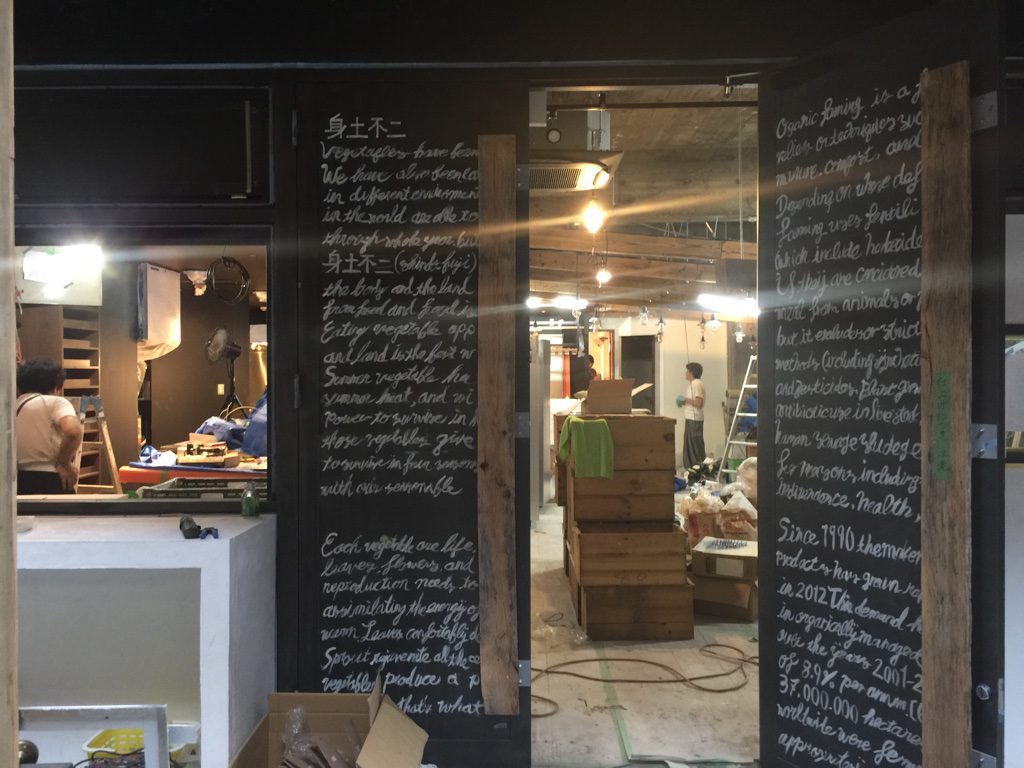 身土不二
Vegetables have been
We have also been
in different environment
in the world are able to
through whole year but
身土不二 (shindo fuji)
the body and the land
from food and food is
Eating vegetable app
and land is the best w
Summer vegetable ha
summer heat, and wi
Power to survive in h
those vegetables give
to survive in four seasons
with our seasonable
Each vegetable are life,
leaves, flowers, and
reproduction needs to
assimilating the energy of
warm. Leaves comfortably d
Sprout rejuvenate all the ce
vegetables produce a p
that's what
Organic farming is a f
relies on techniques suc
manure, compost, and
Depending on whose def
farming uses fertili
which include
if they are considered
meal from animals or
but it excludes or strict
methods including
and pesticides, plant grow
antibiotic use in livestock
human sewage sludge
for reasons including
independence, health,
Since 1990 the market
products has grown rap
in 2012 This demand h
in organically managed
over the years 2001-2
of 8.9% per annum
37.000.000 hectares
worldwide were farm
approximat